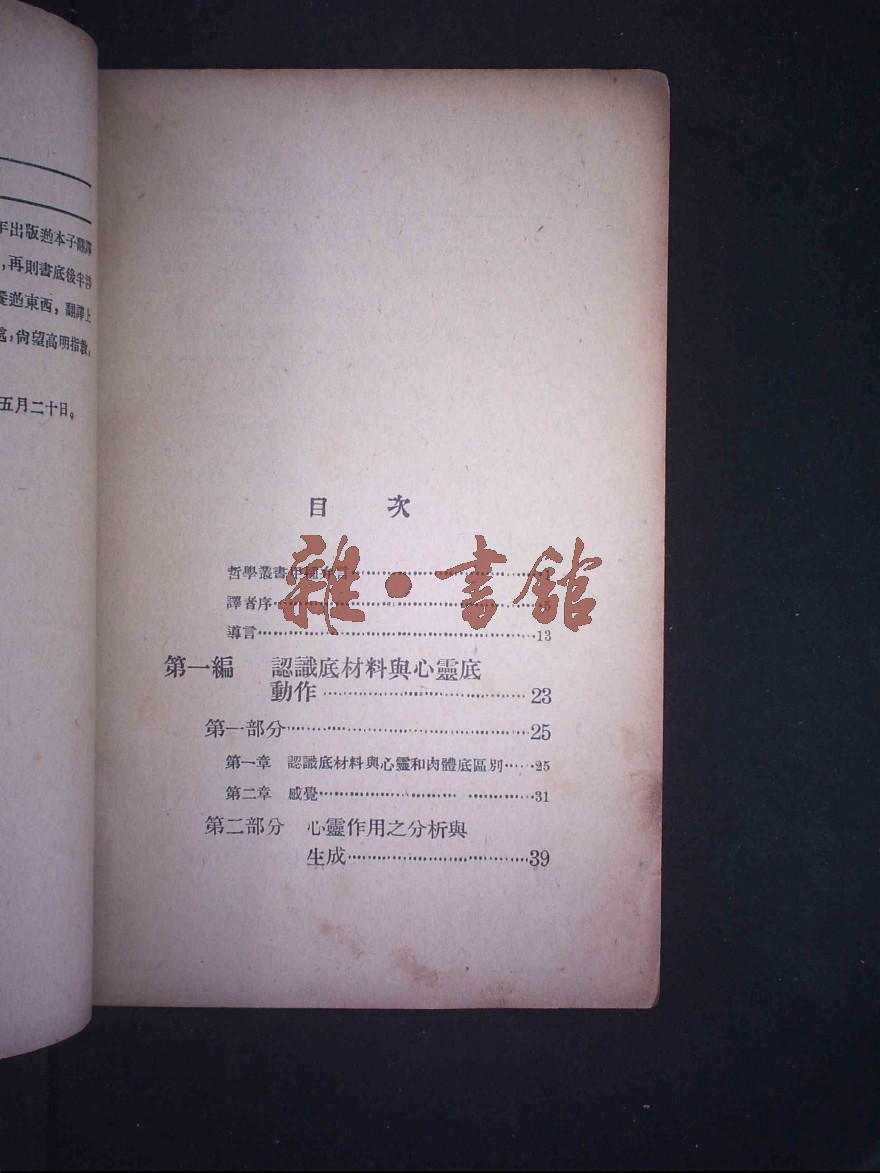 年出版過本子翻譯
,再則書底後半
過東西,翻譯上
處,尙望高明指教,
五月二十日。
目 次
哲學叢書 言 1
譯者序 5
導言 13
第一編 認識底材料與心靈底
動作 23
第一部分 25
第一章 認識底材料與心靈和肉體底區別 25
第二章 感覺 31
第二部分 心靈作用之分析與
生成 39
雜·書館